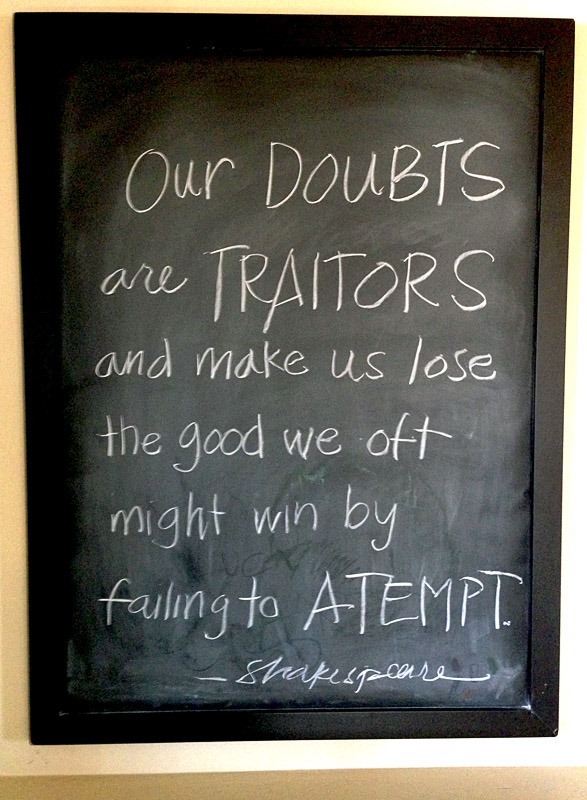 Our DOUBTS
are TRAITORS
and make us lose
the good we oft
might win by
failing to ATEMPT.
- Shakespeare